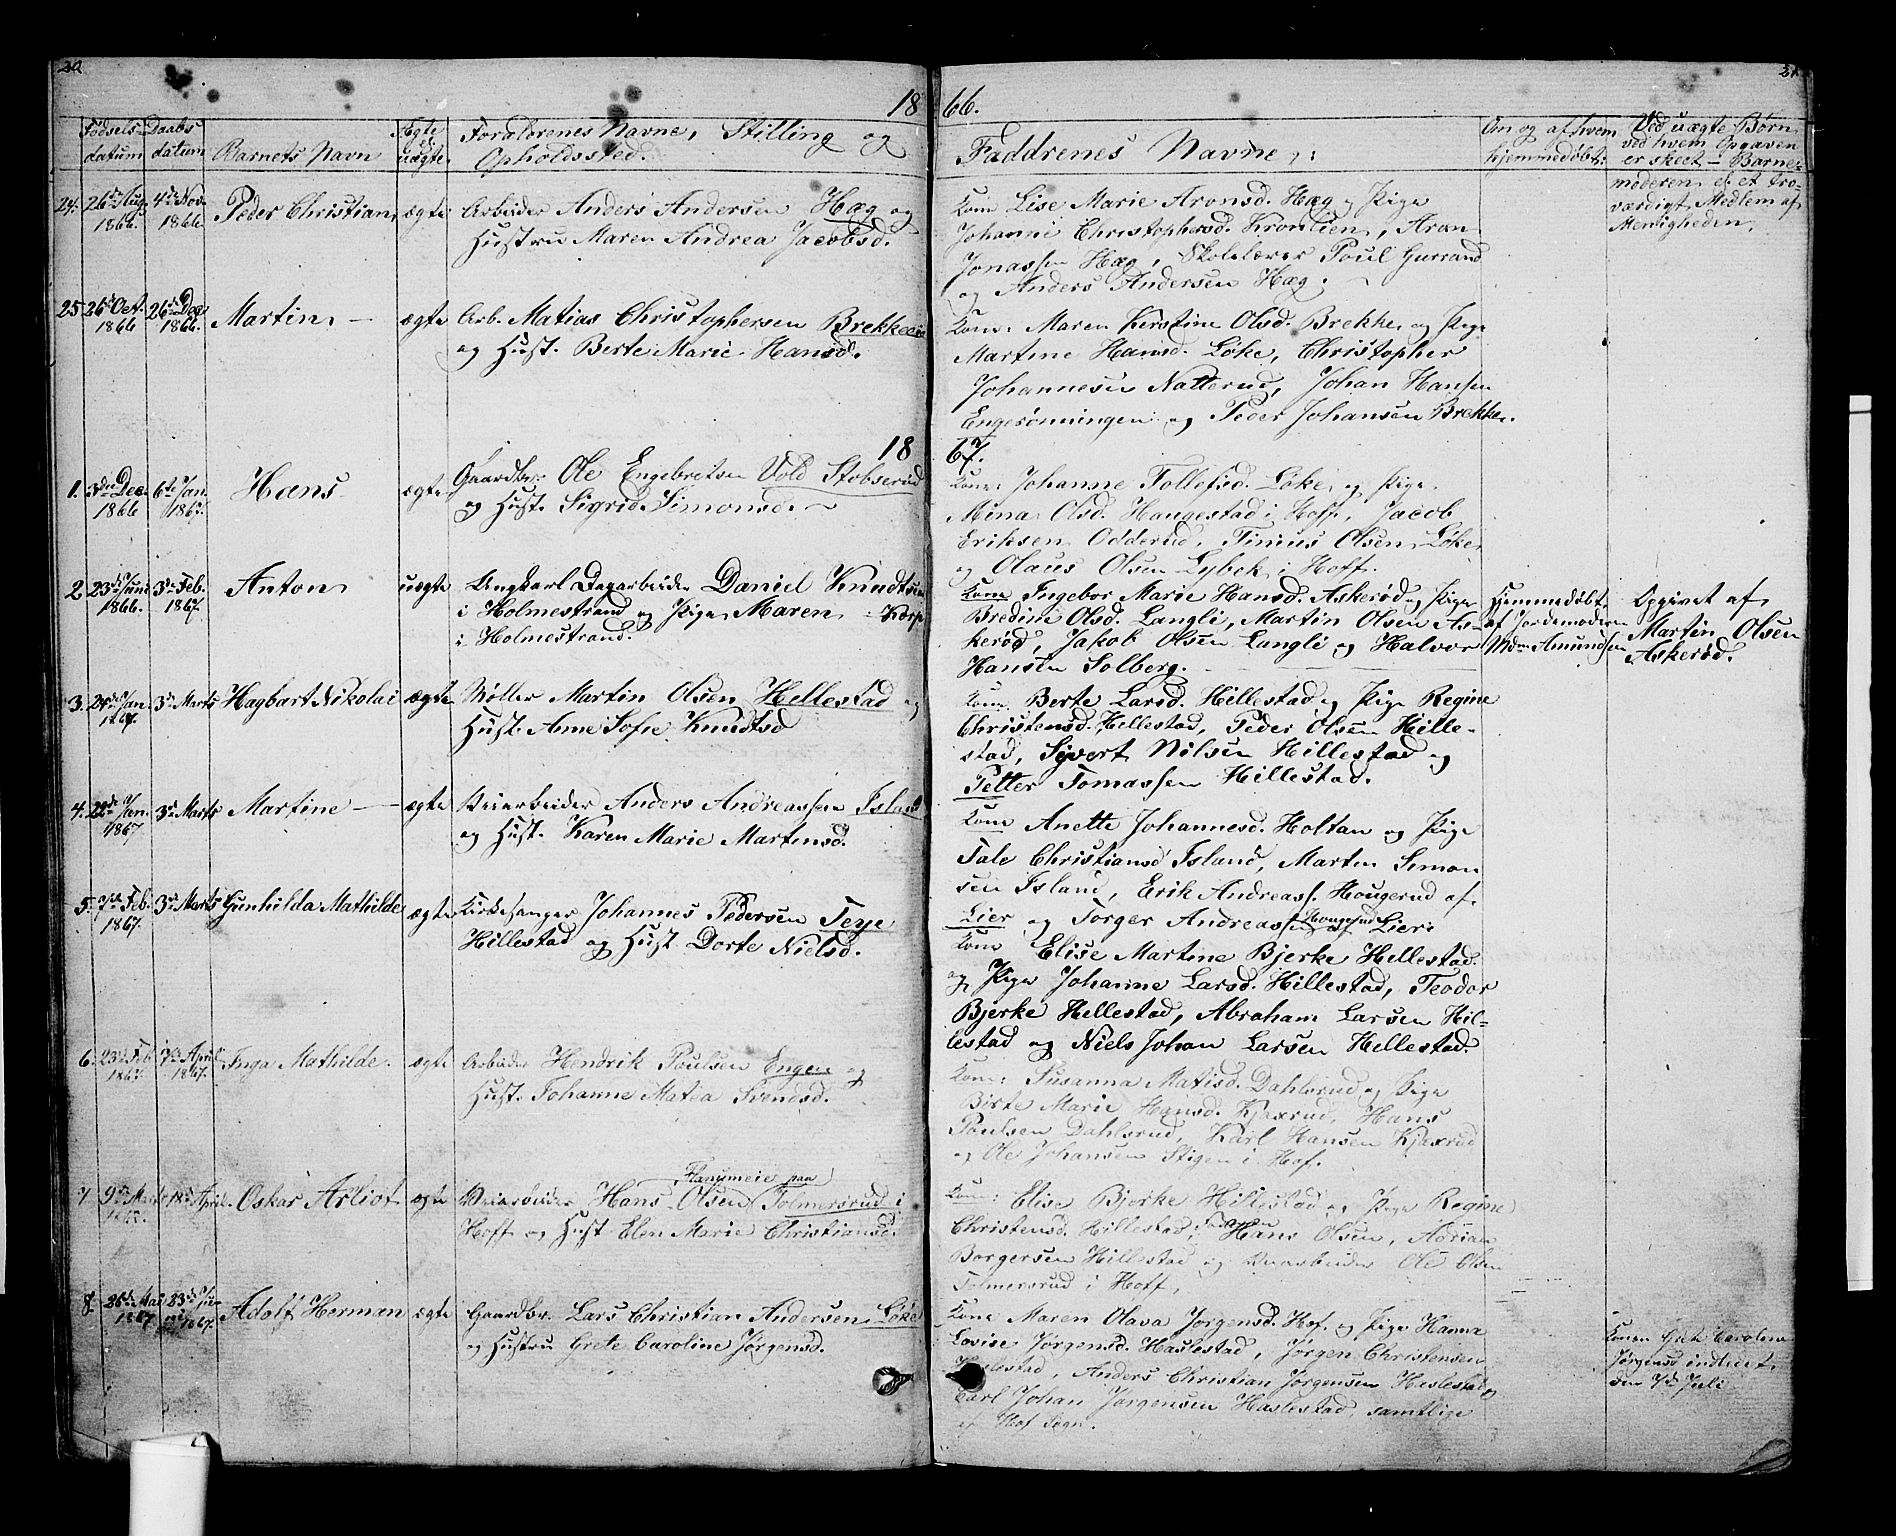 20
18
Fødsels-
datum
Daabs
datum
Barnets Navn
Ægte
uægte
Forældrenes Navne, Stilling og
Opholdssted.
24. 26de Aug. 1866. 4de Nov. 1866 Peder Christian ægte Arbeider Anders Andersen Hæg og
Hustru Maren Andrea Jacobsd.
25. 26de Oct. 1866 26de Dec. 1866. Martin ægte Arb. Matias Christophersen Brekke
og Hust. Berte Marie Hansd.
18
1. 3die Dec. 1866 6te Jan. 1867. Hans ægte Gaardbr. Ole Engebretsen Vold Stobserud
og Hust. Sigrid Simonsd.
2. 23de Juni 1866. 3de Feb. 1867. Anton uægte Ungkarl Dagarbeider Daniel Knudtsen
i Holmestrand og Pige Maren
i Holmestrand.
3. Jan. 1867. 3de Marts Hagbart Nikolai ægte Møller Martin Olsen Hellestad og
Hust. Anne Sofie Knudtsd
4. 22de Jan. 1867 3de Marts Martine ægte Veiarbeider Anders Andreassen Island
og Hust. Karen Marie Martinsd.
5. 7de Feb. 1867. 3de Marts Gunhilda Mathilde ægte Kirkesanger Johannes Pedersen Teye
Hillestad og Hust Dorte Nielsd.
6. 23de Feb. 1867. 7de April 1867. Inga Mathilde. ægte Arbeider Hendrik Poulsen Engen og
Hust. Johanne Matea Svendsd.
7 9de Marts 1867. April. Oskar Arliot ægte Veiarbeider Hans Olsen Tolmersrud i
Hoff og Hust Elen Marie Christiansd.
8. 26de Mai 1867 23de Juni 1867. Adolf Herman ægte Gaardbr. Lars Christian Andersen Løke
og Hustru Grete Caroline Jørgensd.
21
66.
Faddrenes Navne:
Om og af hvem
hjemmedøbt:
Ved uægte Børn
ved hvem Opgaven
er skeet - Barne-
moderen el et tro-
værdigt Medlem af
Menigheden.
Kone Lise Marie Aronsd. Hæg og Pige
Johanne Christophersd. Kronlien, Aron
Jonassen Hæg, Skolelærer Poul Gurrand
og Anders Andersen Hæg.
Kone: Maren Kirstine Olsd. Brekke og Pige
Martine Hansd. Løke, Christopher
Johannesen Natterud, Johan Hansen
Engerønningen og Peder Johansen Brekke.
67.
Kone: Johanne Tollefsd. Løke og Pige
Mina Olsd. Haugestad i Hoff, Jacob
Eriksen Odderud, Tinius Olsen Løke
og Olaus Olsen Lybek i Hoff.
Kone Ingebor Marie Hansd. Askerød og Pige
Bredine Olsd. Langli, Martin Olsen As-
kerød, Jakob Olsen Langli og Halvor
Hansen Solberg.
Hjemmedøbt
af Jordemoderen
Mdm Amundsen
Opgivet af
Martin Olsen
Askerød.
Kone Berte Larsd. Hillestad og Pige Regine
Christensd. Hillestad, Peder Olsen Hille-
stad, Syvert Nilsen Hillestad og
Petter Tomassen Hillestad.
Kone Anette Johannesd. Holtan og Pige
Tale Christiansd Island, Marten Simon
sen Island, Erik Andreass. Hougerud af
Lier og Torger Andreassen Hougerud af Lier.
Kone Elise Martine Bjerke Hillestad
og Pige Johanne Larsd. Hillestad, Teodor
Bjerke Hellestad, Abraham Larsen Hil-
lestad og Niels Johan Larsen Hellestad.
Kone: Susanna Matisd. Dahlsrud og Pige
Birte Marie Hansd. Kjaxrud, Hans
Paulsen Dahlsrud, Karl Hansen Kjaxrud
og Ole Johansen Stigen i Hof.
Kone: Elise Bjerke Hillestad og Pige Regine
Christensd. Hillestad, Faderen Hans Olsen, Adrian
Borgersen Hillestad og Veiarbeider Ole Olsen
Tolmersrud i Hoff.
Kone Maren Olava Jørgensd. Hof. og Pige Hanna
Lovise Jørgensd. Haslestad, Jørgen Christensen
Haslestad, Anders Christian Jørgensen Haslestad og
Carl Johan Jørgensen Haslestad, samtlige
af Hof Sogn.
Konen Grete Caroline
Jørgensd indledet
den 7de Juli